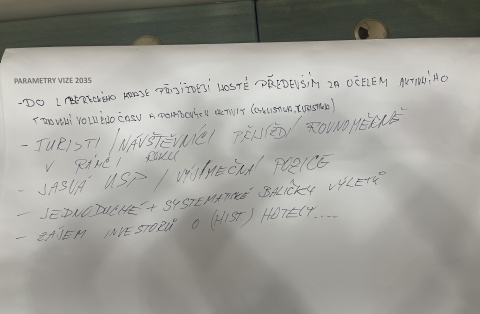 PARAMETRY VIZE 2035
- DO LIBERECKÉHO KRAJE PŘIJÍŽDĚJÍ HOSTÉ PŘEDEVŠÍM ZA ÚČELEM AKTIVNÍHO
TRÁVENÍ VOLNÉHO ČASU A POHYBOVÝCH AKTIVIT (CYKLISTIKA, TURISTIKA)
- TURISTI / NÁVŠTĚVNÍCI PŘIJEDÍ ROVNOMĚRNĚ
V RÁMCI ROKU
- JASNÁ USP / VÝJIMEČNÁ POZICE
- JEDNODUCHÉ + SYSTEMATICKÉ BALÍČKY VÝLETŮ
- ZÁJEM INVESTORŮ O (HIST) HOTELY....